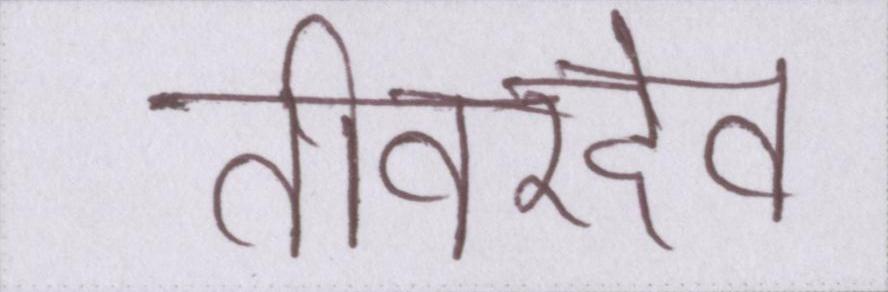 तीवरदेव